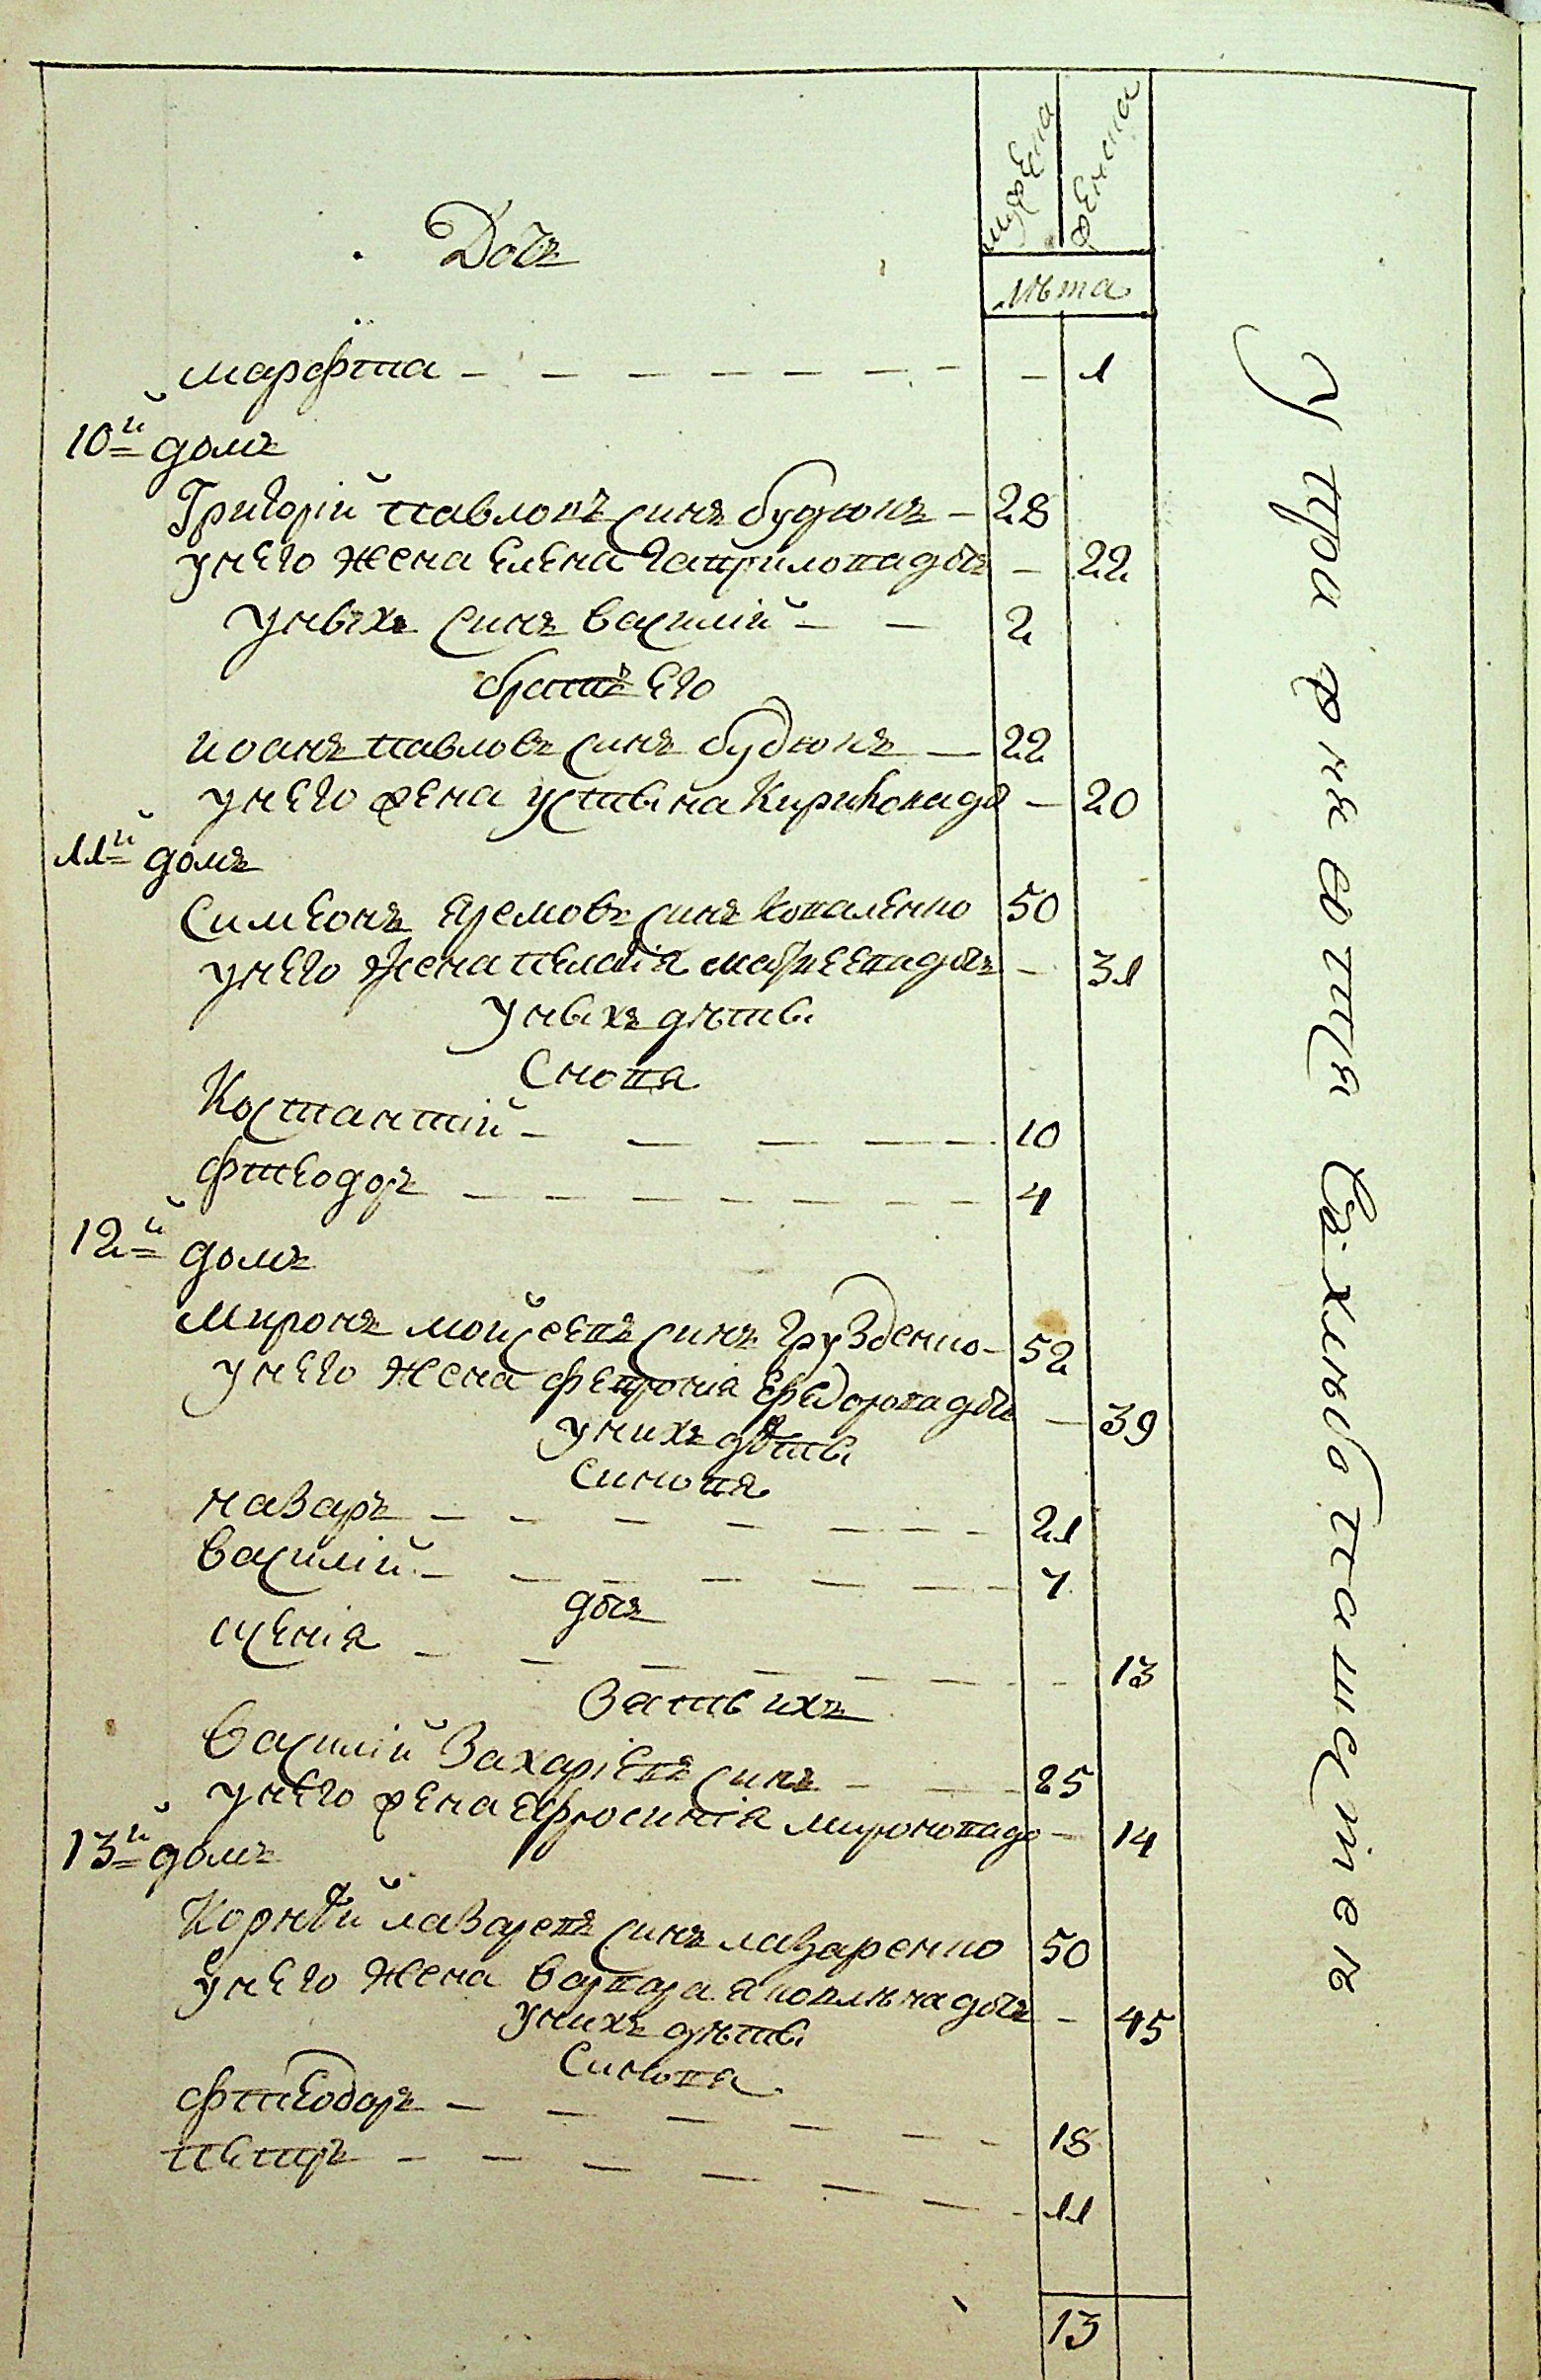 мужеска
женска
лѣта
Дочъ
марфта 1
10й домъ
Григорій павловъ синъ будюкъ 28
унего жена елена гаврилова дочъ 22
унихъ синъ василій 2
братъ его
иоанъ павловъ синъ будюкъ 22
унего жена устина Кирикова до 20
11й домъ
Симеонъ яремовъ синъ коваленко 50
унего жена пелагія матвеева дочъ 31
унихъ дѣти
Снови
Костантій 10
фтеодоръ 4
12й домъ
миронъ мойсеевъ синъ грузденко 52
унего жена февронія ефедорова дочъ 39
унихъ дѣти
Синови
назаръ 21
василій 7
дочъ
ксенія 13
Зять ихъ
василій Захаріевъ синъ 25
унего жена ефросинія миронова до 14
13й домъ
Корнѣй лазаревъ синъ лазаренко 50
унего жена варвара яковлѣва дочъ 45
унихъ дѣти
Синови
фтеодоръ 18
петръ 11
13
У пражняются въ хлѣбопашествіи